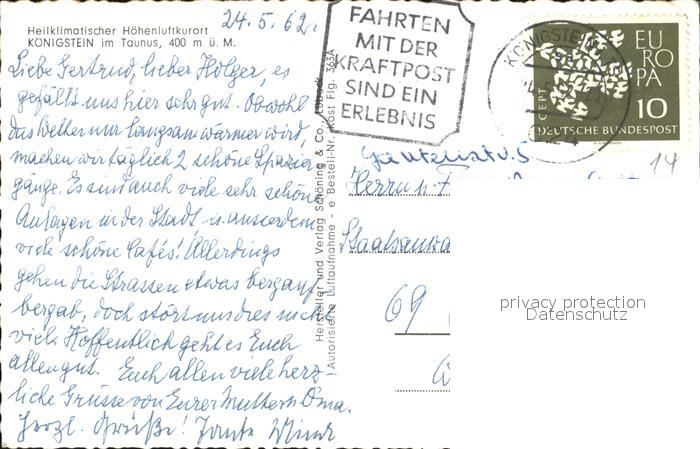 24.5.62.
Heilklimatischer Höhenluftkurort
KÖNIGSTEIN im Taunus, 400 m ü. M.
Liebe Gertrud, lieber Holger, es
gefällt uns hier sehr gut. Obwohl
das Wetter nur langsam wärmer wird,
machen wir täglich 2 schöne Spazier-
gänge. Es sind auch viele sehr schöne
Anlagen in der Stadt u. ausserdem
viele schöne Cafés! Allerdings
gehen die Strassen etwas bergauf
bergab, doch stört uns dies nicht
viel. Hoffentlich geht es Euch
allen gut. Euch allen viele herz-
liche Grüsse von Eurer Mutter u. Oma.
Herzl. Grüße! Tante
Hersteller und Verlag Schöning & Co., Lübeck
(Autorisierte Luftaufnahme - e Bestell-Nr. Köst Flg. 363A
FAHRTEN
MIT DER
KRAFTPOST
SIND EIN
ERLEBNIS
KÖNIGSTEIN
EU
RO
PA
CEPT
10
DEUTSCHE BUNDESPOST
14
Herrn u. F
Staatsanwa
69
privacy protection
Datenschutz